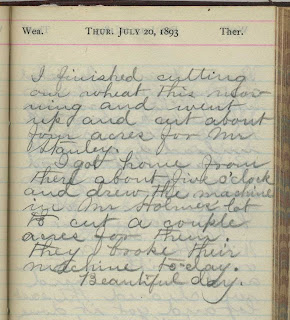 Wea. THUR. JULY 20, 1893 Ther.
I finished cutting
our wheat this mor
ning and went
up and cut about
four acres for Mr
Stanley.
I got home from
there about five o'clock
and drew the machine
in Mr Holmes lot
to cut a couple
acres for them.
they broke their
machine to-day.
Beautiful day.